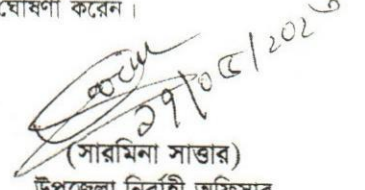 ঘোষণা করেন।
২৭/০৫/২০২৩
(সারমিনা সাত্তার)
উপজেলা নির্বাহী অফিসার